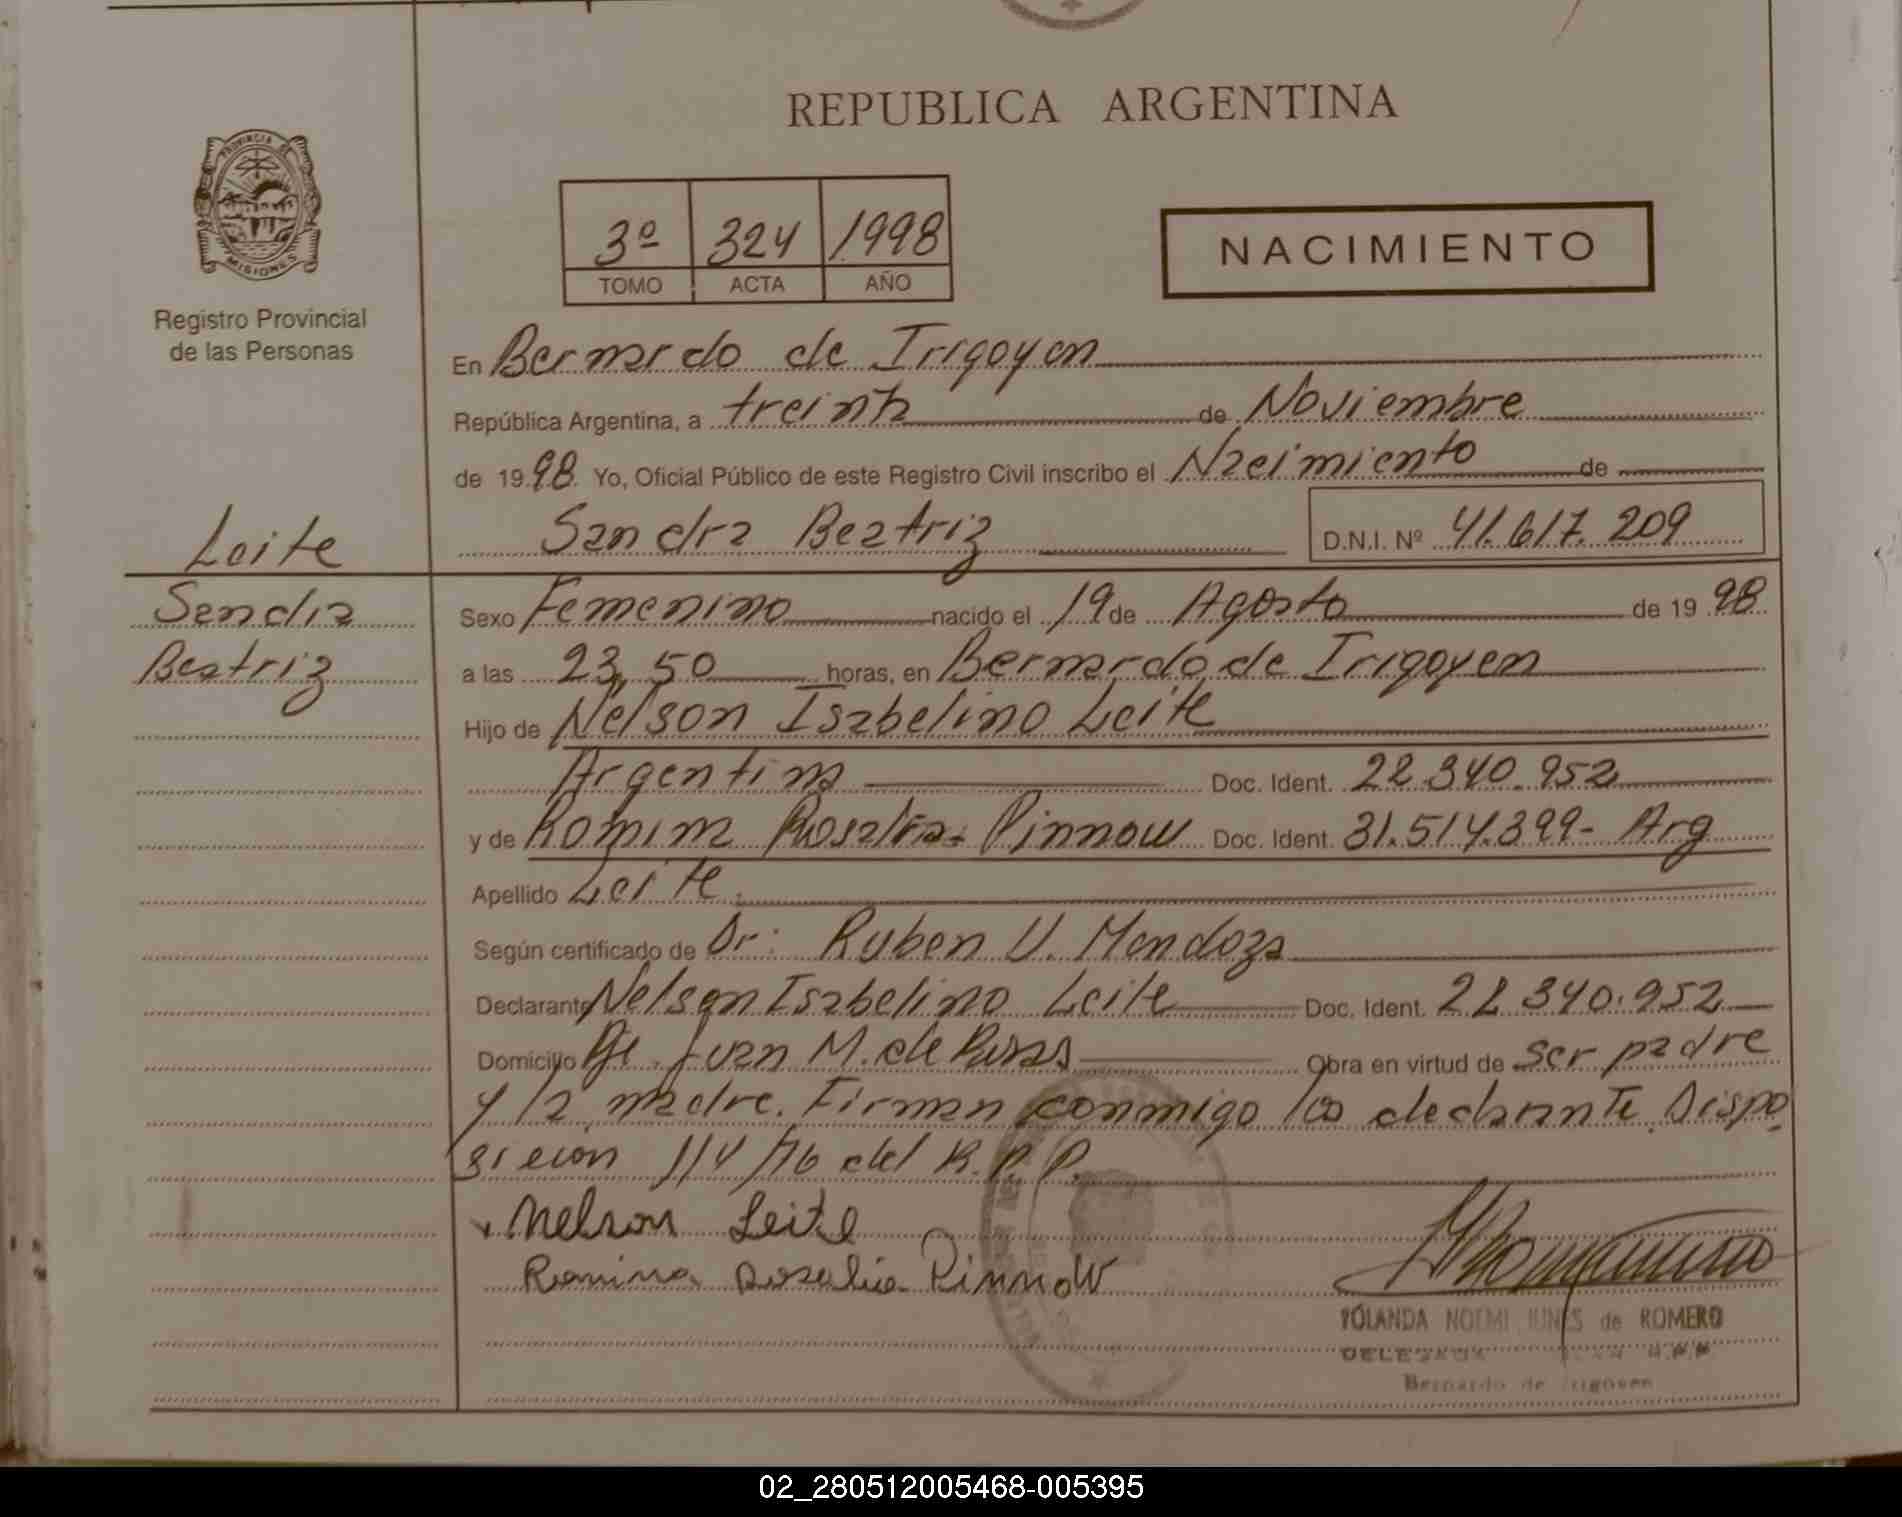 REPUBLICA ARGENTINA
PROVINCIA DE
MISIONES
Registro Provincial
de las Personas
3º 324 1998
TOMO ACTA AÑO
NACIMIENTO
En Bernardo de Irigoyen
República Argentina, a treinta de Noviembre
de 1998 Yo, Oficial Público de este Registro Civil inscribo el Nacimiento de
Leite
Sandra Beatriz D.N.I. Nº 41.617.209
Sandra
Beatriz
Sexo Femenino nacido el 19 de Agosto de 1998
a las 23,50 horas, en Bernardo de Irigoyen
Hijo de Nelson Isabelino Leite
Argentina Doc. Ident. 22.340.952
y de Romina Rosalia Pinnow Doc. Ident. 31.514.399- Arg
Apellido Leite
Según certificado de Dr: Ruben V. Mendoza
Declarante Nelson Isabelino Leite Doc. Ident. 22.340.952
Domicilio Pje. Juan M. de Rosas Obra en virtud de ser padre
y la madre. Firman conmigo los declarante. Dispo
sicion 114/76 del R.P.P.
Nelson Leite
Romina Rosalia Pinnow
YOLANDA NOEMI de ROMERO
Bernardo de Irigoyen
02_280512005468-005395